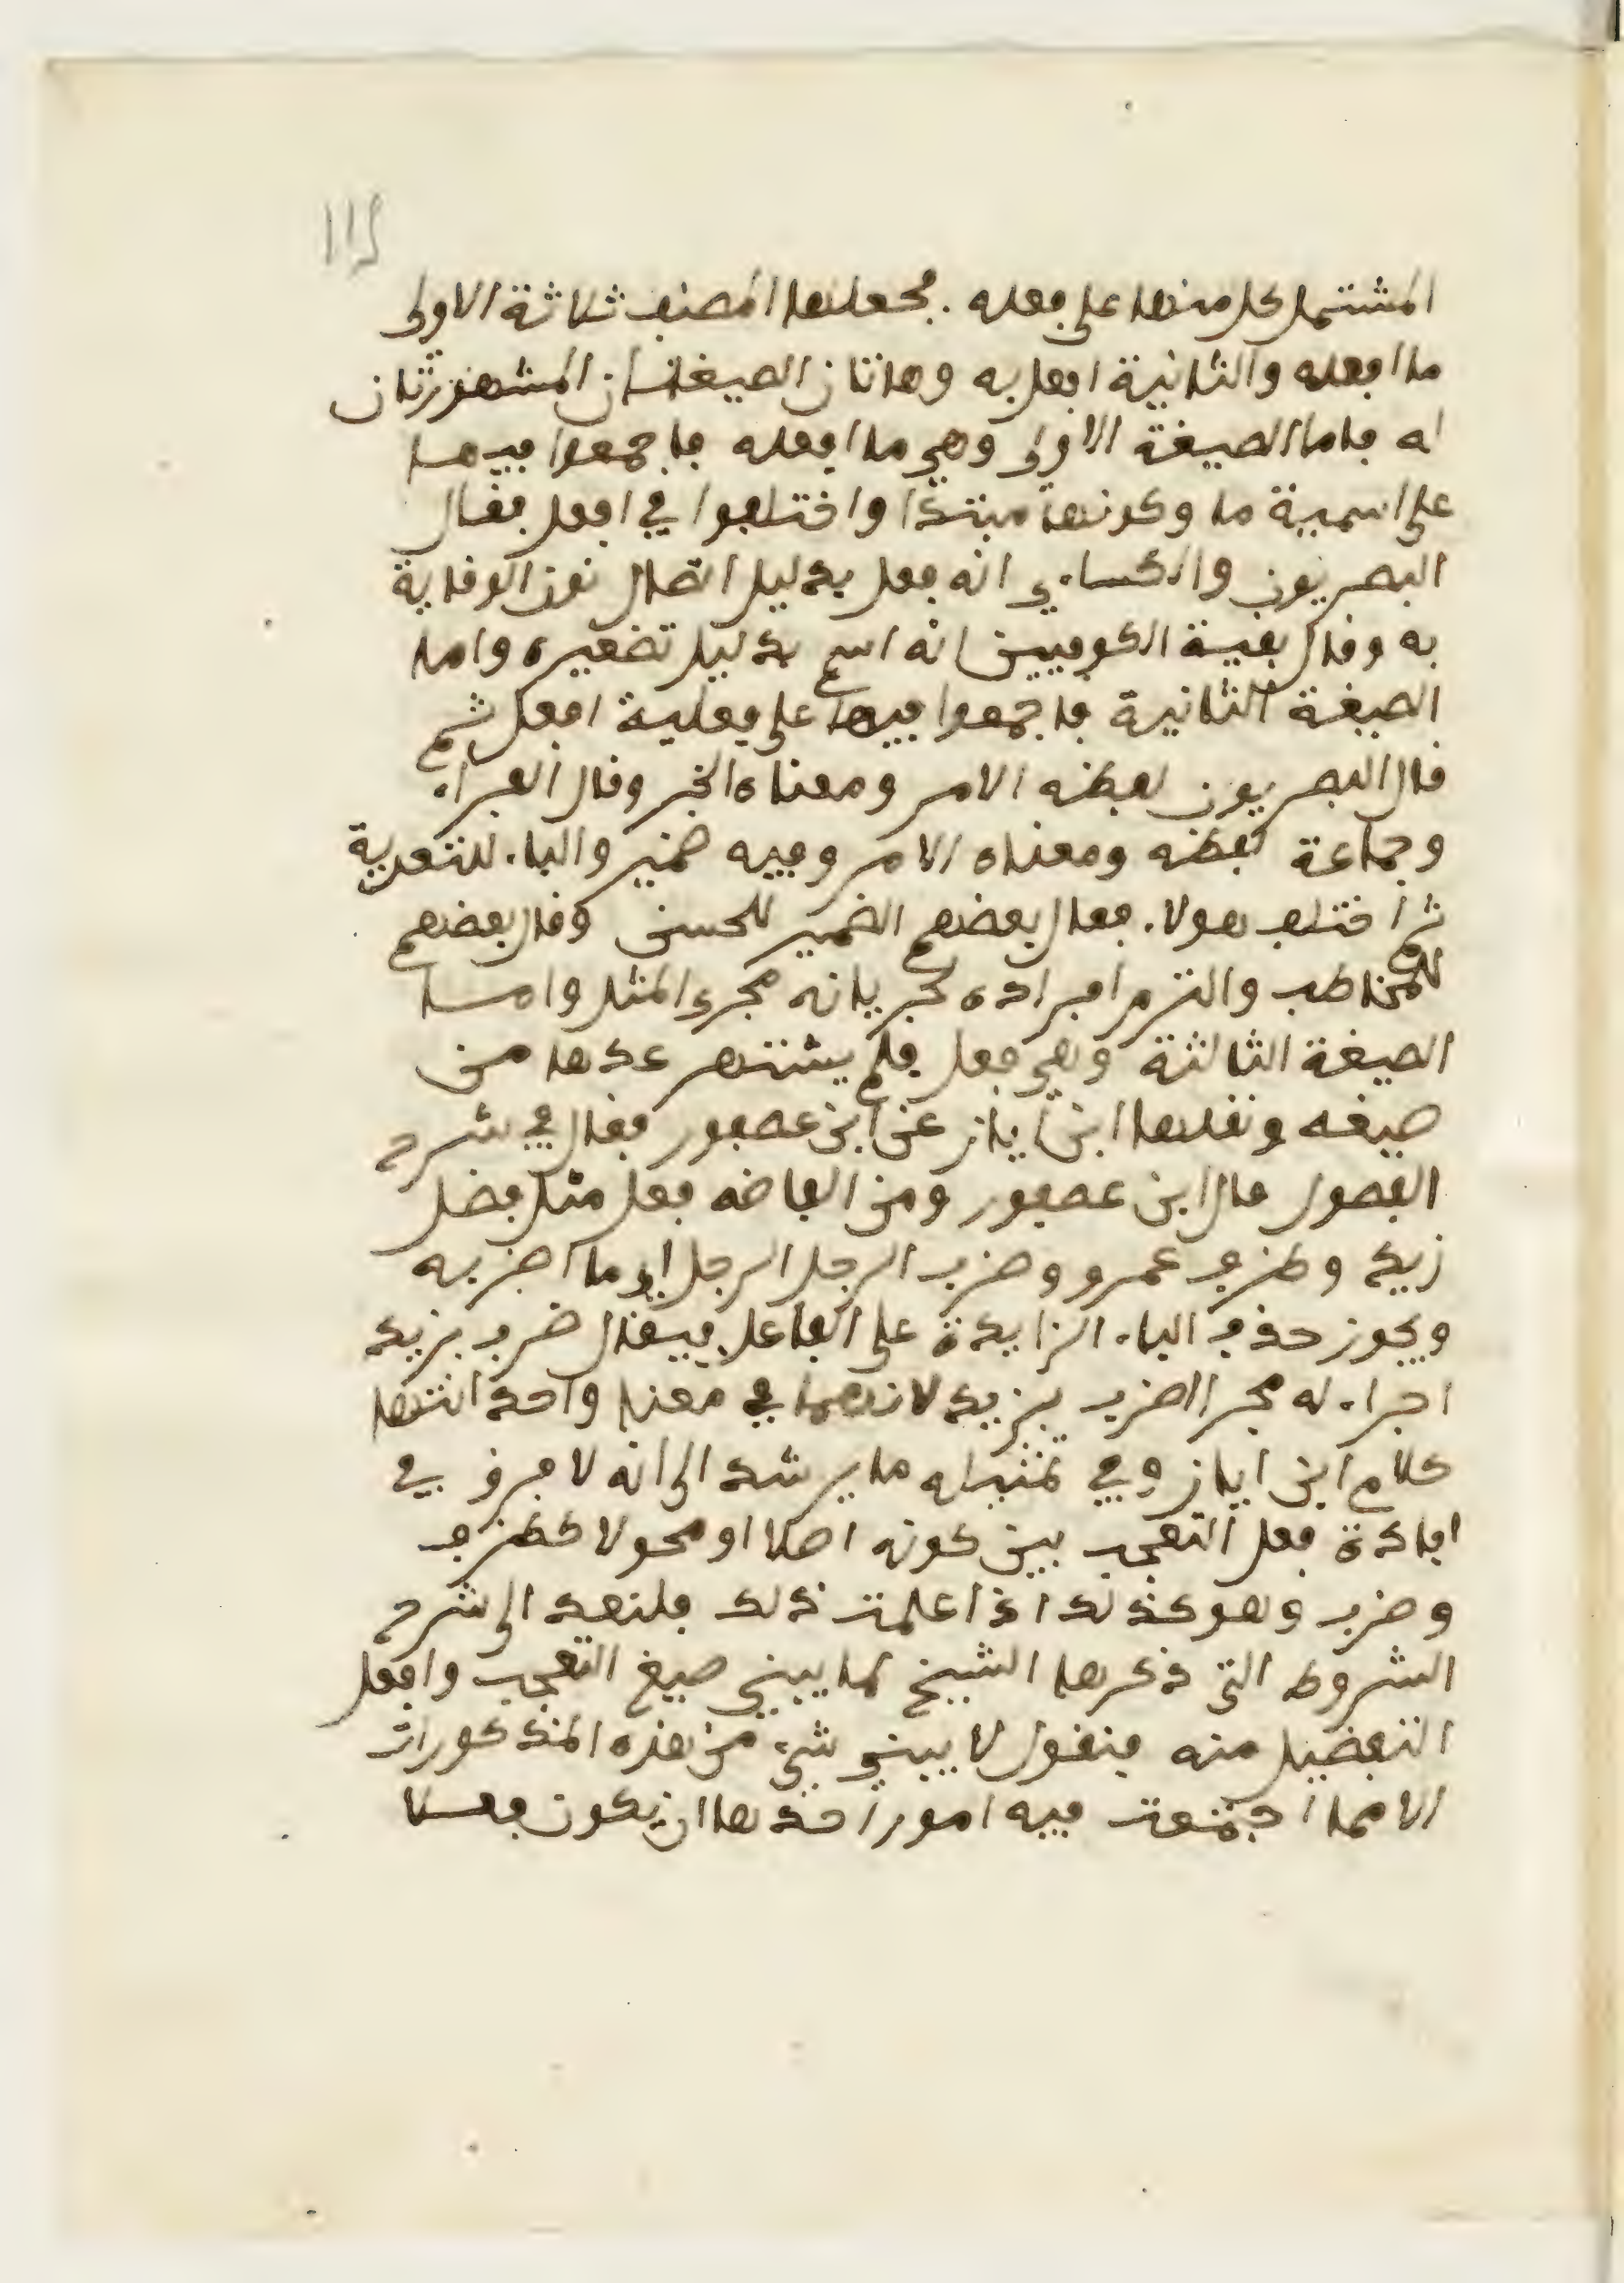 112
المشتمل كل منها على فعله. فجعلها المصنف ثلاثة الاولى
ما افعله والثانية افعل به وهاتان الصيغتان المشهورتان
له فاما الصيغة الاولى وهي ما افعله فاجمعوا فيها
على اسمية ما وكونها مبتدا واختلفوا في افعل فقال
البصريون والكساءي انه فعل بدليل اتصال نون الوقاية
به وقال بقية الكوفيين انه اسم بدليل تصغيره واما
الصيغة الثانية فاجمعوا فيها على فعلية افعل ثم
قال البصريون لفظه الامر ومعناه الخبر وقال الفراء
وجماعة لفظه ومعناه الامر وفيه ضمير والباء للتعدية
ثم اختلف هولاء فقال بعضهم الضمير للحسن وقال بعضهم
للمخاطب والتزم افراده لجريانه مجرى المثل واما
الصيغة الثالثة وهي فعل فلم يشتهر عدها من
صيغه ونقلها ابن اياز عن ابن عصفور فقال في شرح
الفصول قال ابن عصفور ومن الفاضه فعل مثل فضل
زيد وظرف عمرو وضرب الرجل الرجل اي ما اضربه
ويجوز حذف الباء الزايدة على الفاعل فيقال ضرب بزيد
اجراء له مجرا اضرب بزيد لانهما في معنا واحد انتها
كلام ابن اياز وفي تمثيله ما يرشد الى انه لا فرق في
افادة فعل التعجب بين كونه اصلا او محولا كظرف
وضرب وهو كذلك اذا علمت ذلك فلنعد الى شرح
الشروط التي ذكرها الشيخ لما يبنى صيغ التعجب وافعل
التفضيل منه فنقول لا يبنى شيء من هذه المذكورات
الا مما اجتمعت فيه امور احدها ان يكون فعلا